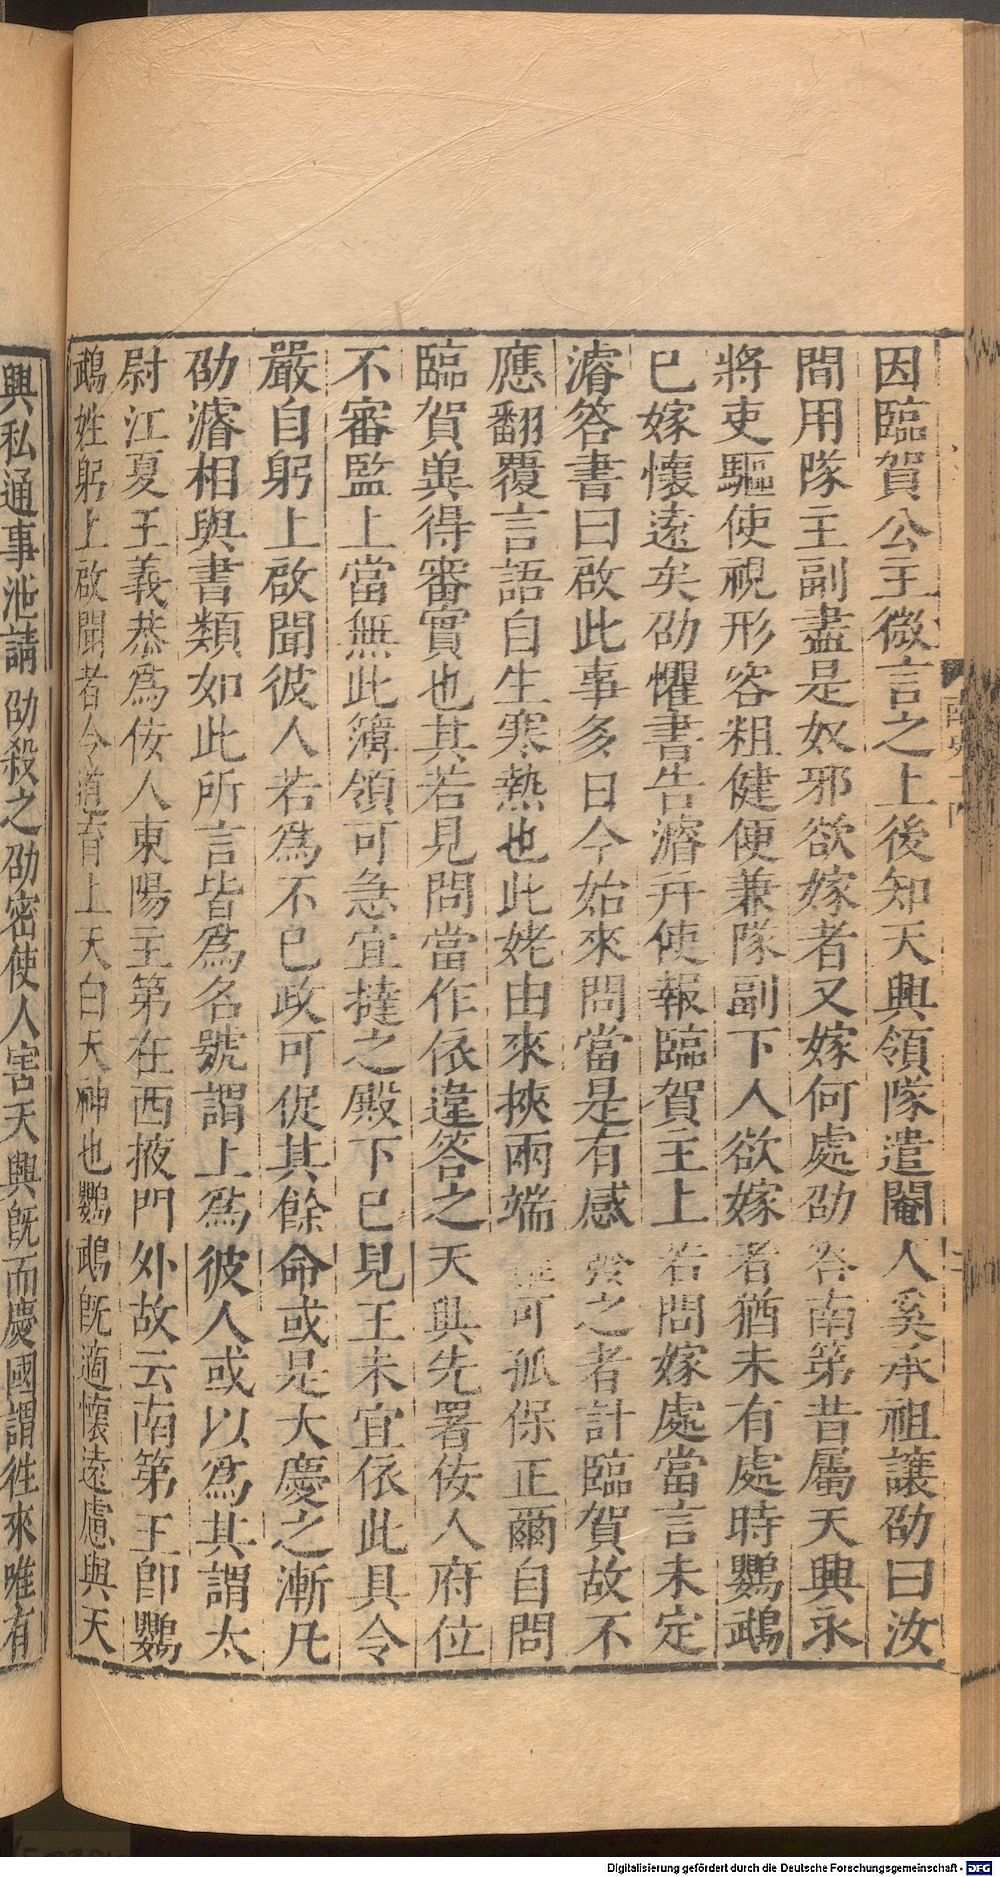 因臨賀公主微言之上後知天興領隊遣閹人奚承祖讓劭曰汝
間用隊主副盡是奴邪欲嫁者又嫁何處劭答南第昔屬天興永
將吏驅使視形容粗健便兼隊副下人欲嫁者猶未有處時鸚鵡
已嫁懷遠矣劭懼書告濬并使報臨賀主上若問嫁處當言未定
濬答書曰啟此事多日今始來問當是有感發之者計臨賀故不
應翻覆言語自生寒熱也此姥由來挾兩端 可孤保正爾自問
臨賀兾得審實也其若見問當作依違答之天興先署佞人府位
不審監上當無此簿領可急宜撻之殿下已見王未宜依此具令
嚴自躬上啟聞彼人若為不已政可促其餘命或是大慶之漸凡
劭濬相與書類如此所言皆為名號謂上為彼人或以為其謂太
尉江夏王義恭為佞人東陽主第在西掖門外故云南第王即鸚
鵡姓躬上啟聞者令道育上天白天神也鸚鵡既適懷遠慮與天
興私通事泄請劭殺之劭密使人害天興既而慶國謂往來唯有
南史十四
Digitalisierung gefördert durch die Deutsche Forschungsgemeinschaft - DFG